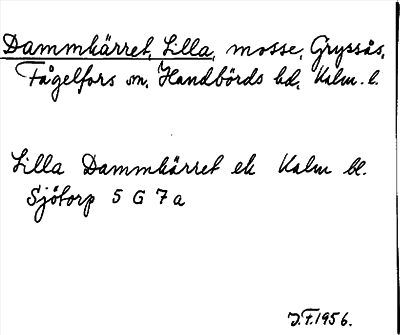 Dammkärret, Lilla, mosse, Gryssås,
Fågelfors sn, Handbörds hd, Kalm. l.
Lilla Dammkärret ek Kalm bl.
Sjötorp 5 G 7 a
J.F. 1956.